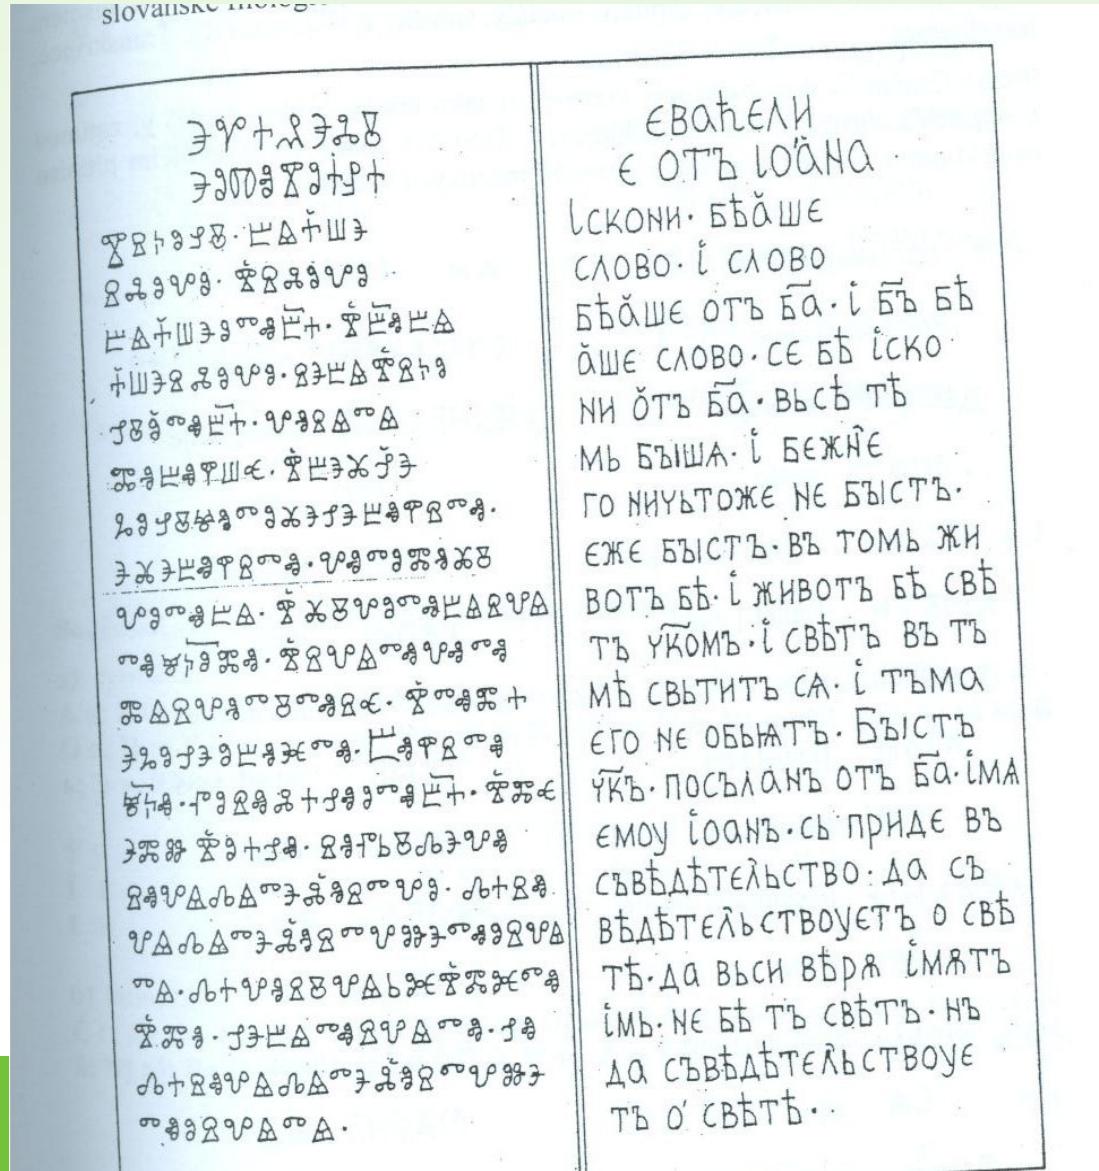 slovanske
ⰵⰲⰰⰼⰵⰾⰻ
ⰵⱁⱅⱏⰺⱁ̇ⰰⱀⰰ
ⰺⱄⰽⱁⱀⰻ· ⰱⱑⰰ̆ⱎⰵ
ⱄⰾⱁⰲⱁ· ⰺ̇ⱄⰾⱁⰲⱁ
ⰱⱑⰰ̆ⱎⰵⱁⱅⱏⰱ҃ⰰ· ⰺ̇ⰱ҃ⱏⰱⱑ
ⰰ̆ⱎⰵⱄⰾⱁⰲⱁ· ⱄⰵⰱⱑⰺ̇ⱄⰽⱁ
ⱀⰻⱁ̆ⱅⱏⰱ҃ⰰ· ⰲⱐⱄⱑⱅⱑ
ⰿⱐⰱⱏⰺⱎⱔ· ⰺ̇ⰱⰵⰶⱀ̑ⰵ
ⰳⱁⱀⰻⱍⱐⱅⱁⰶⰵⱀⰵⰱⱏⰺⱄⱅⱏ·
ⰵⰶⰵⰱⱏⰺⱄⱅⱏ· ⰲⱏⱅⱁⰿⱐⰶⰻ
ⰲⱁⱅⱏⰱⱑ· ⰺ̇ⰶⰻⰲⱁⱅⱏⰱⱑⱄⰲⱑ
ⱅⱏⱍ҃ⰽⱁⰿⱏ· ⰺ̇ⱄⰲⱑⱅⱏⰲⱏⱅⱏ
ⰿⱑⱄⰲⱐⱅⰻⱅⱏⱄⱔ· ⰺ̇ⱅⱏⰿⰰ
ⰵⰳⱁⱀⰵⱁⰱⱏⱗⱅⱏ· Ⰱⱏⰺⱄⱅⱏ
ⱍ҃ⰽⱏ· ⱂⱁⱄⱏⰾⰰⱀⱏⱁⱅⱏⰱ҃ⰰ· ⰺ̇ⰿⱔ
ⰵⰿⱆ ⰺ̇ⱁⰰⱀⱏ· ⱄⱐⱂⱃⰻⰴⰵⰲⱏ
ⱄⱏⰲⱑⰴⱑⱅⰵⰾ̑ⱐⱄⱅⰲⱁ· ⰴⰰⱄⱏ
ⰲⱑⰴⱑⱅⰵⰾ̑ⱐⱄⱅⰲⱆⰵⱅⱏⱁⱄⰲⱑ
ⱅⱑ· ⰴⰰⰲⱐⱄⰻⰲⱑⱃⱘⰺ̇ⰿⱘⱅⱏ
ⰺ̇ⰿⱐ· ⱀⰵⰱⱑⱅⱏⱄⰲⱑⱅⱏ· ⱀⱏ
ⰴⰰⱄⱏⰲⱑⰴⱑⱅⰵⰾ̑ⱐⱄⱅⰲⱆⰵ
ⱅⱏⱁⱄⰲⱑⱅⱑ·
ЄВАЋЕЛИ
Є ОТЪ ІО̆АНА
ІСКОНИ· БѢӐШЄ
СЛОВО· І̇ СЛОВО
БѢӐШЄ ОТЪ Б҃А· І̇ Б҃Ъ БѢ
ӐШЄ СЛОВО· СЄ БѢ І̇СКО
НИ О̆ТЪ Б҃А· ВЬСѢ ТѢ
МЬ БЪІШѦ· І̇ БЕЖН̑Є
ГО НИЧЬТОЖЄ НЄ БЪІСТЪ·
ЄЖЄ БЪІСТЪ· ВЪ ТОМЬ ЖИ
ВОТЪ БѢ· І̇ ЖИВОТЪ БѢ СВѢ
ТЪ Ч҃КОМЪ· І̇ СВѢТЪ ВЪ ТЪ
МѢ СВЬТИТЪ СѦ· І̇ ТЪМА
ЄГО НЄ ОБЪѨТЪ· БЪІСТЪ
Ч҃КЪ· ПОСЪЛАНЪ ОТЪ Б҃А· І̇МѦ
ЄМОУ І̇ОАНЪ· СЬ ПРИДЄ ВЪ
СЪВѢДѢТЕЛ̑ЬСТВО: ДА СЪ
ВѢДѢТЕЛ̑ЬСТВОУЄТЪ О СВѢ
ТѢ· ДА ВЬСИ ВѢРѪ І̇МѪТЪ
І̇МЬ· НЄ БѢ ТЪ СВѢТЪ· НЪ
ДА СЪВѢДѢТЕЛ̑ЬСТВОУЄ
ТЪ О̇ СВѢТѢ··